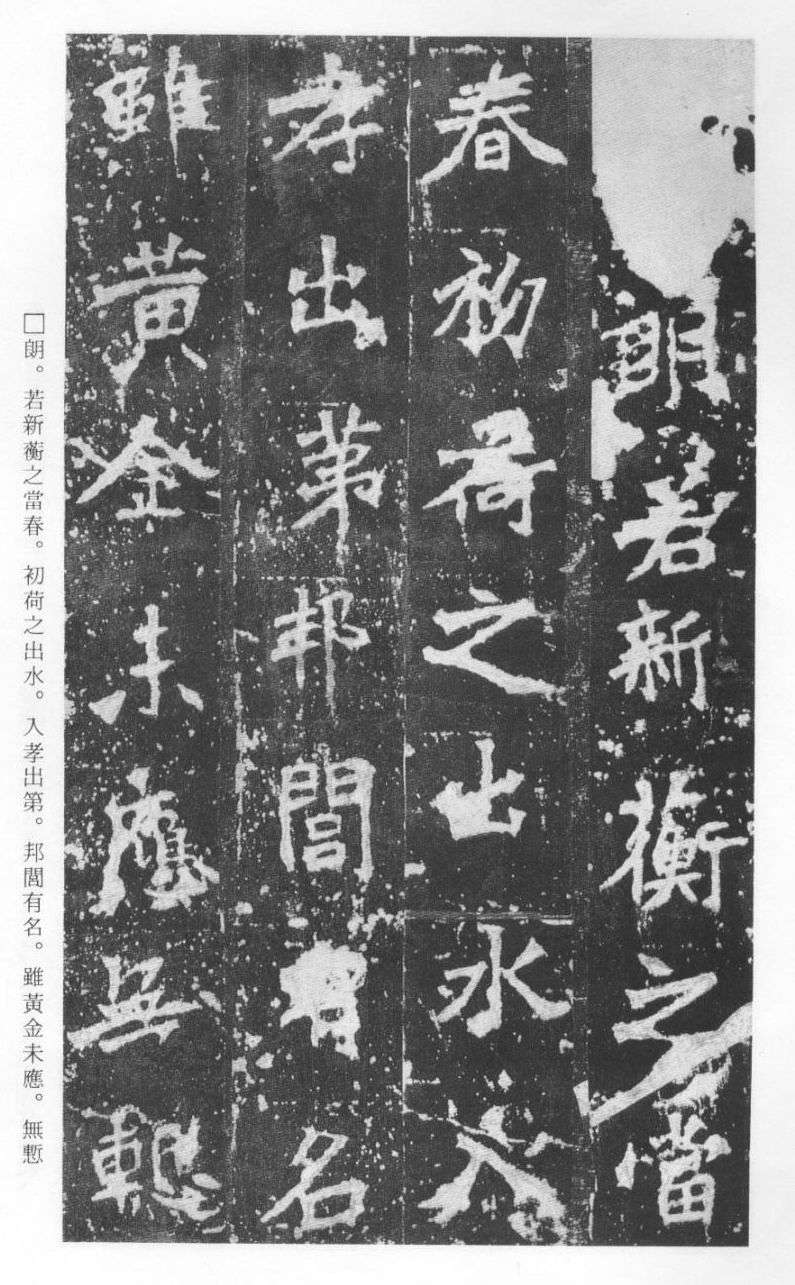 朗若新蘅之當
春初荷之出水入
孝出苐邦閭有名
雖黃金未應無慙
□朗。若新蘅之當春。初荷之出水。入孝出第。邦閭有名。雖黃金未應。無慙